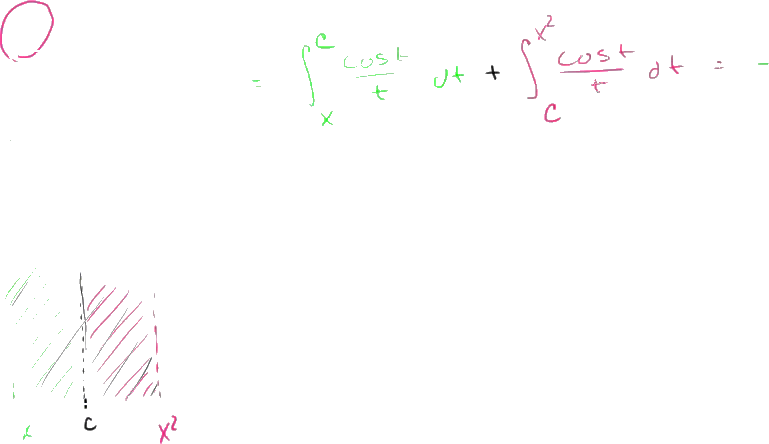 = ∫_x^c cos t / t dt + ∫_c^{x²} cos t / t dt = -
x c x²